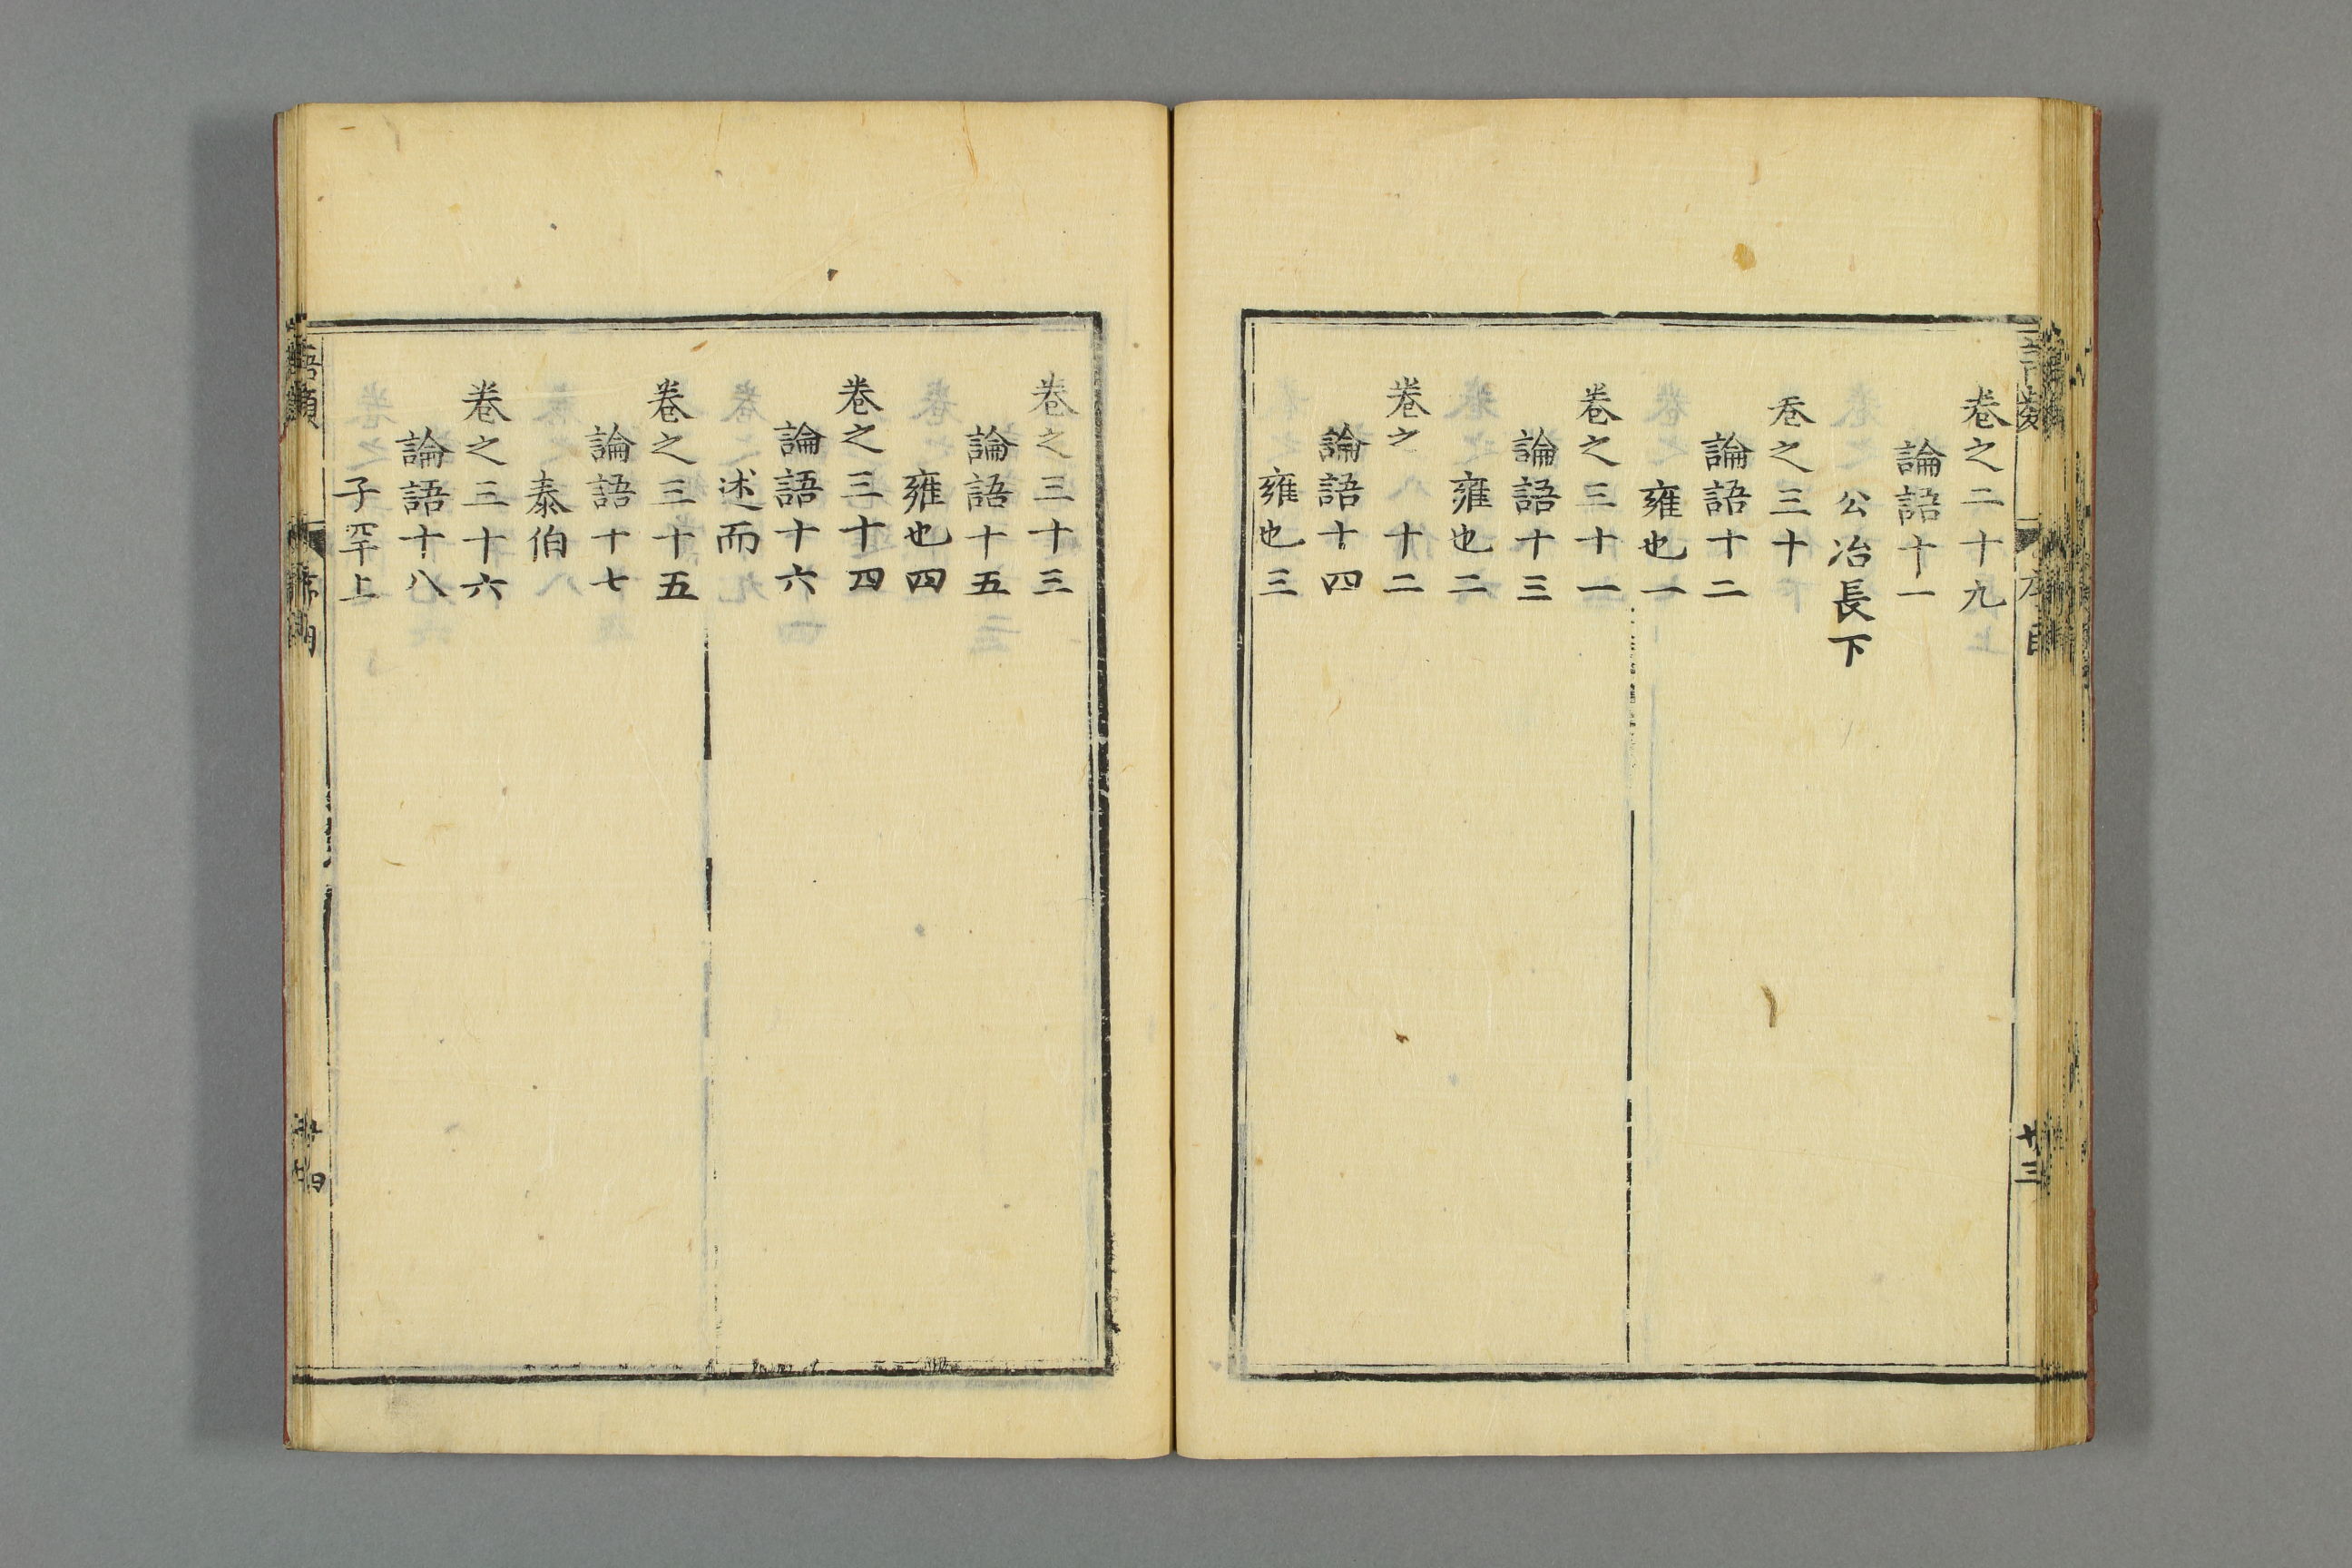 卷之二十九
論語十一
公冶長下
卷之三十
論語十二
雍也一
卷之三十一
論語十三
雍也二
卷之 十二
論語十四
雍也三
卷之三十三
論語十五
雍也四
卷之三十四
論語十六
述而
卷之三十五
論語十七
泰伯
卷之三十六
論語十八
子罕上
語類